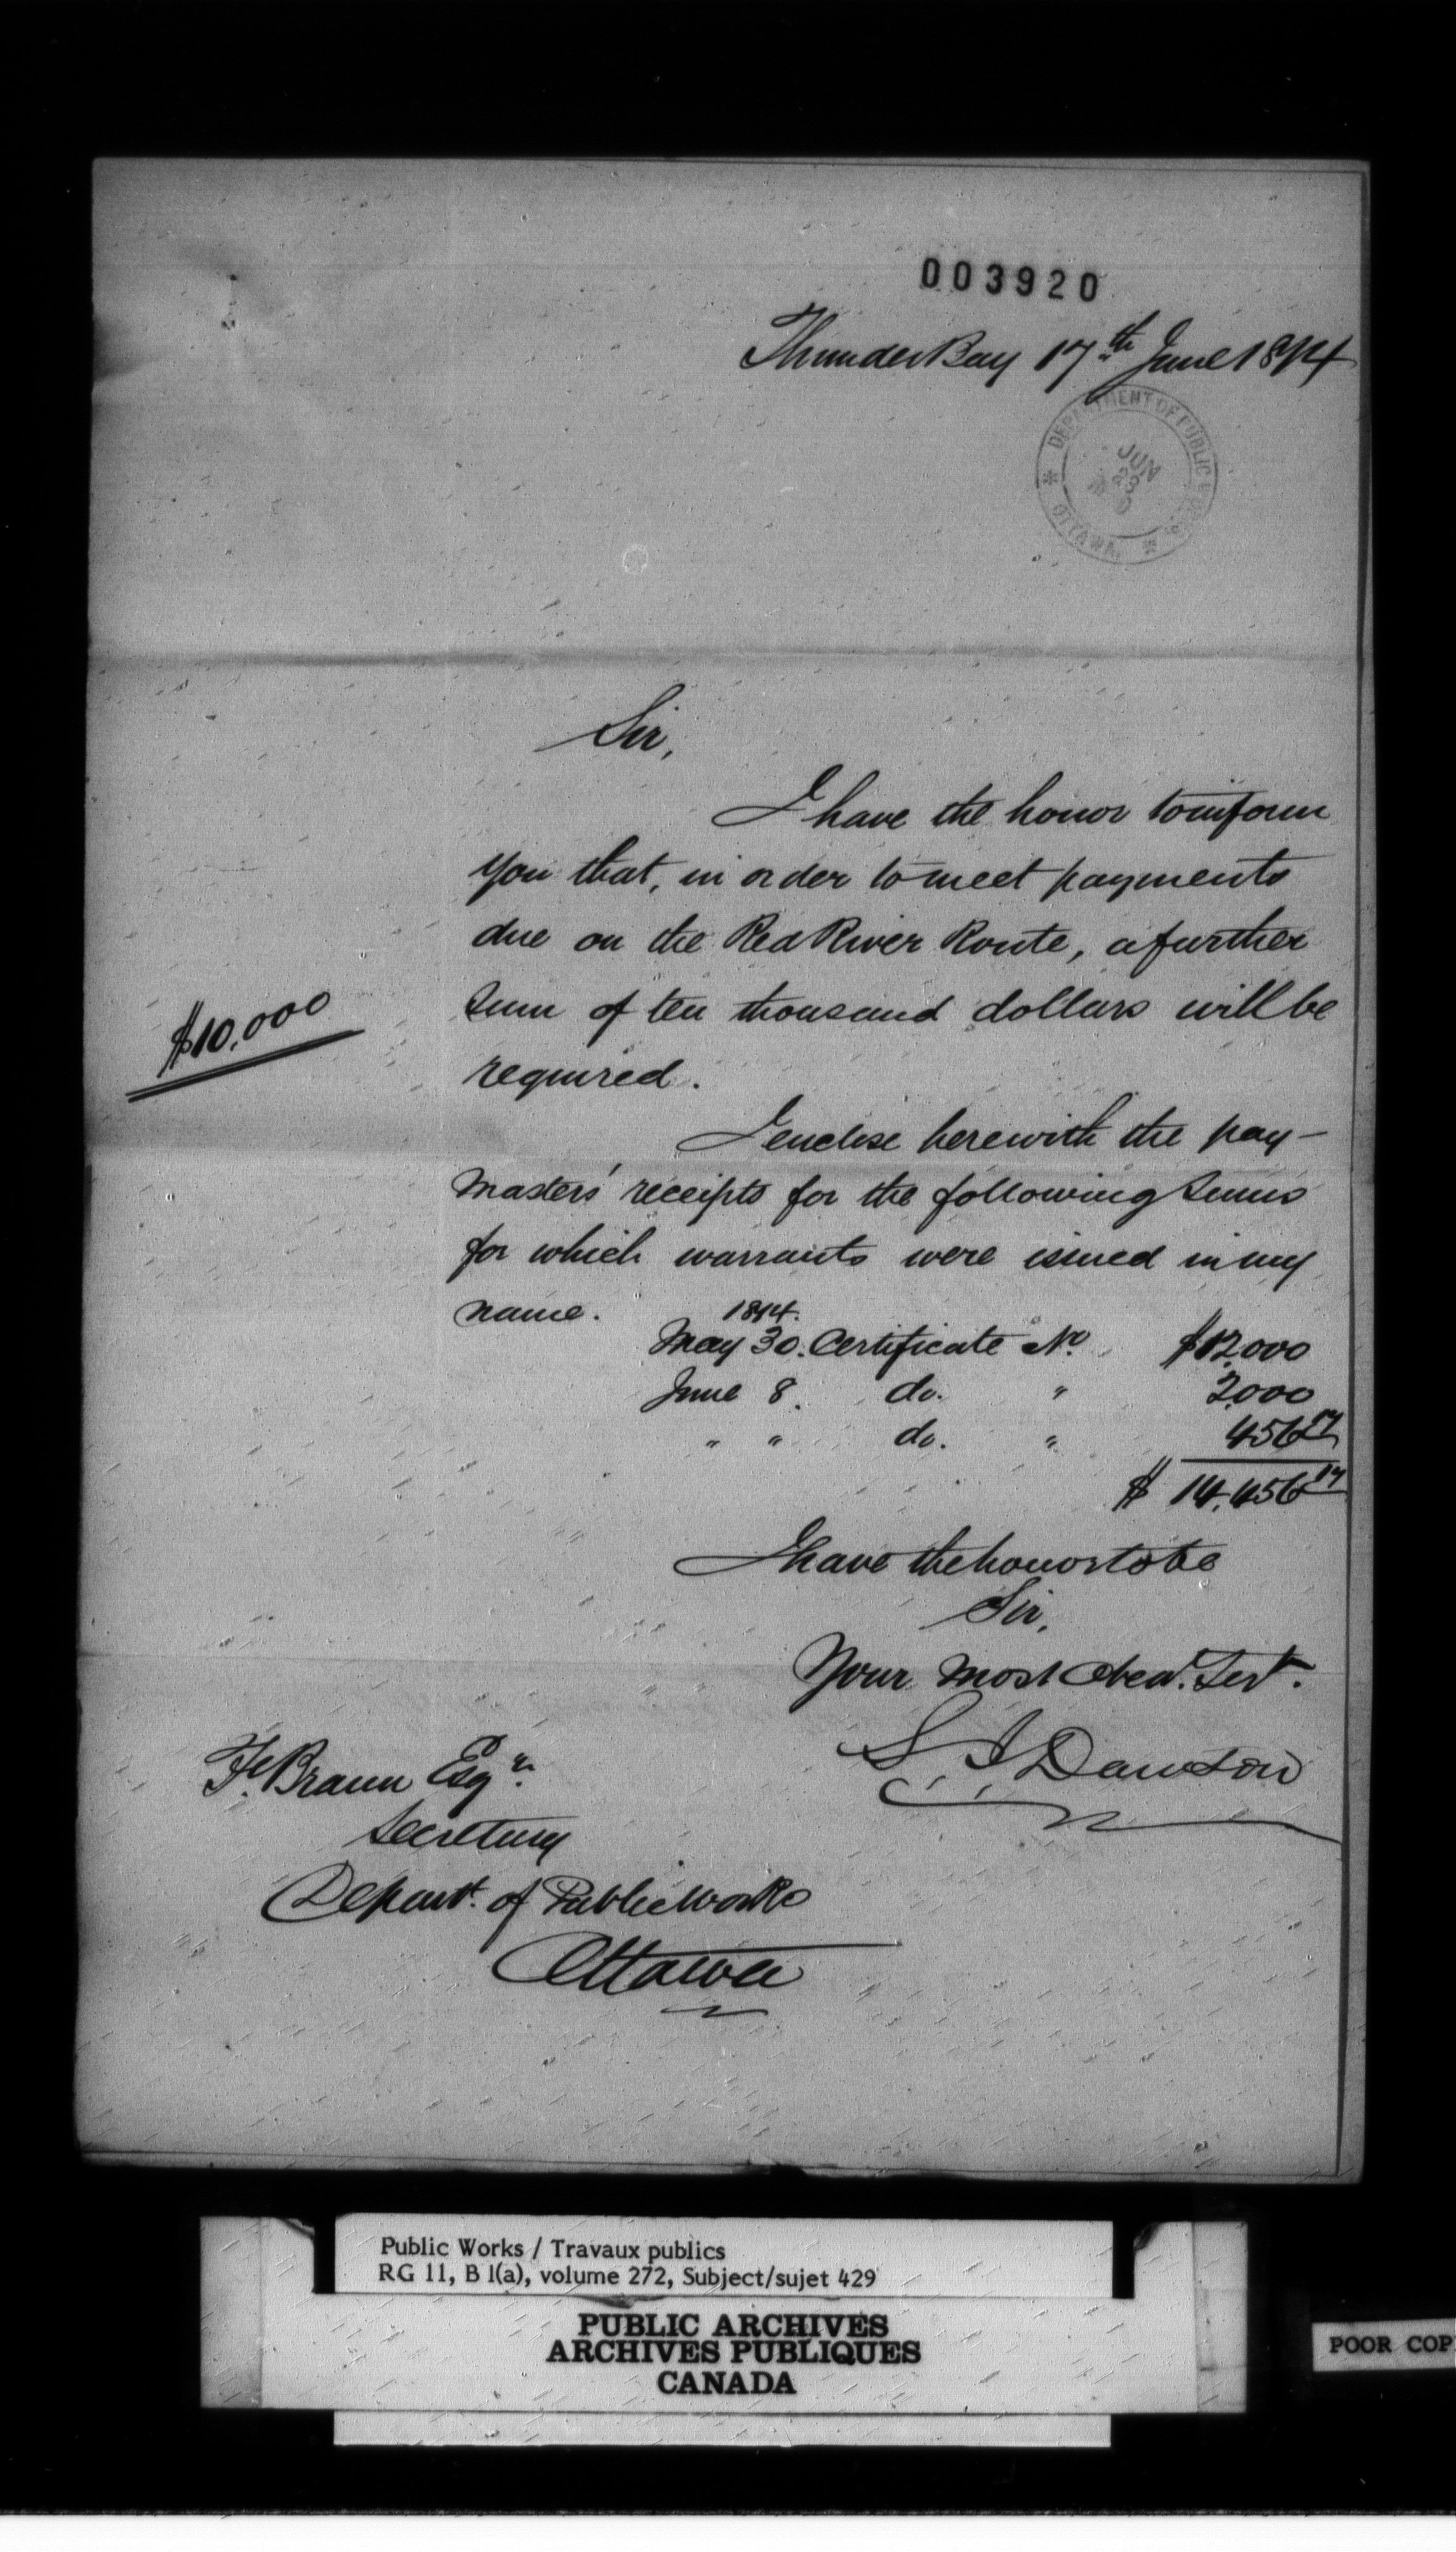 003920
Thunder Bay 17th June 1874
DEPARTMENT OF PUBLIC WORKS
JUN
23
OTTAWA
Sir,
I have the honor to inform
you that, in order to meet payments
due on the Red River Route, a further
sum of ten thousand dollars will be
$10,000
required.
I enclose herewith the pay-
masters' receipts for the following sums
for which warrants were issued in my
name.
1874.
May 30. Certificate No. $12,000
June 8. do. " 2,000
" " do. " 456 17
$ 14,456 17
I have the honor to be
Sir,
Your most Obed. Servt.
S. J. Dawson
F. Braun Esqre.
Secretary
Depart. of Public Works
Ottawa
Public Works / Travaux publics
RG 11, B 1(a), volume 272, Subject/sujet 429
PUBLIC ARCHIVES
ARCHIVES PUBLIQUES
CANADA
POOR COP